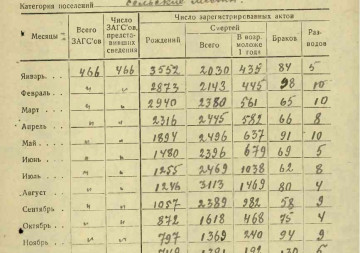 Категория поселений сельские местн.
Месяцы
Всего ЗАГС'ов
Число ЗАГС'ов, представивших сведения
Число зарегистрированных актов
Рождений
Смертей
Всего
В возр. моложе 1 года
Браков
Разводов
Январь 466 466 3552 2030 435 84 5
Февраль " " 2873 2143 445 98 10
Март " " 2940 2380 561 65 10
Апрель " " 2316 2445 582 66 8
Май " " 1894 2496 637 91 10
Июнь " " 1480 2396 679 69 5
Июль " " 1255 2469 1038 62 8
Август " " 1246 3113 1469 80 4
Сентябрь " " 1057 2389 982 58 9
Октябрь " " 872 1618 468 75 4
Ноябрь " " 797 1369 240 94 9